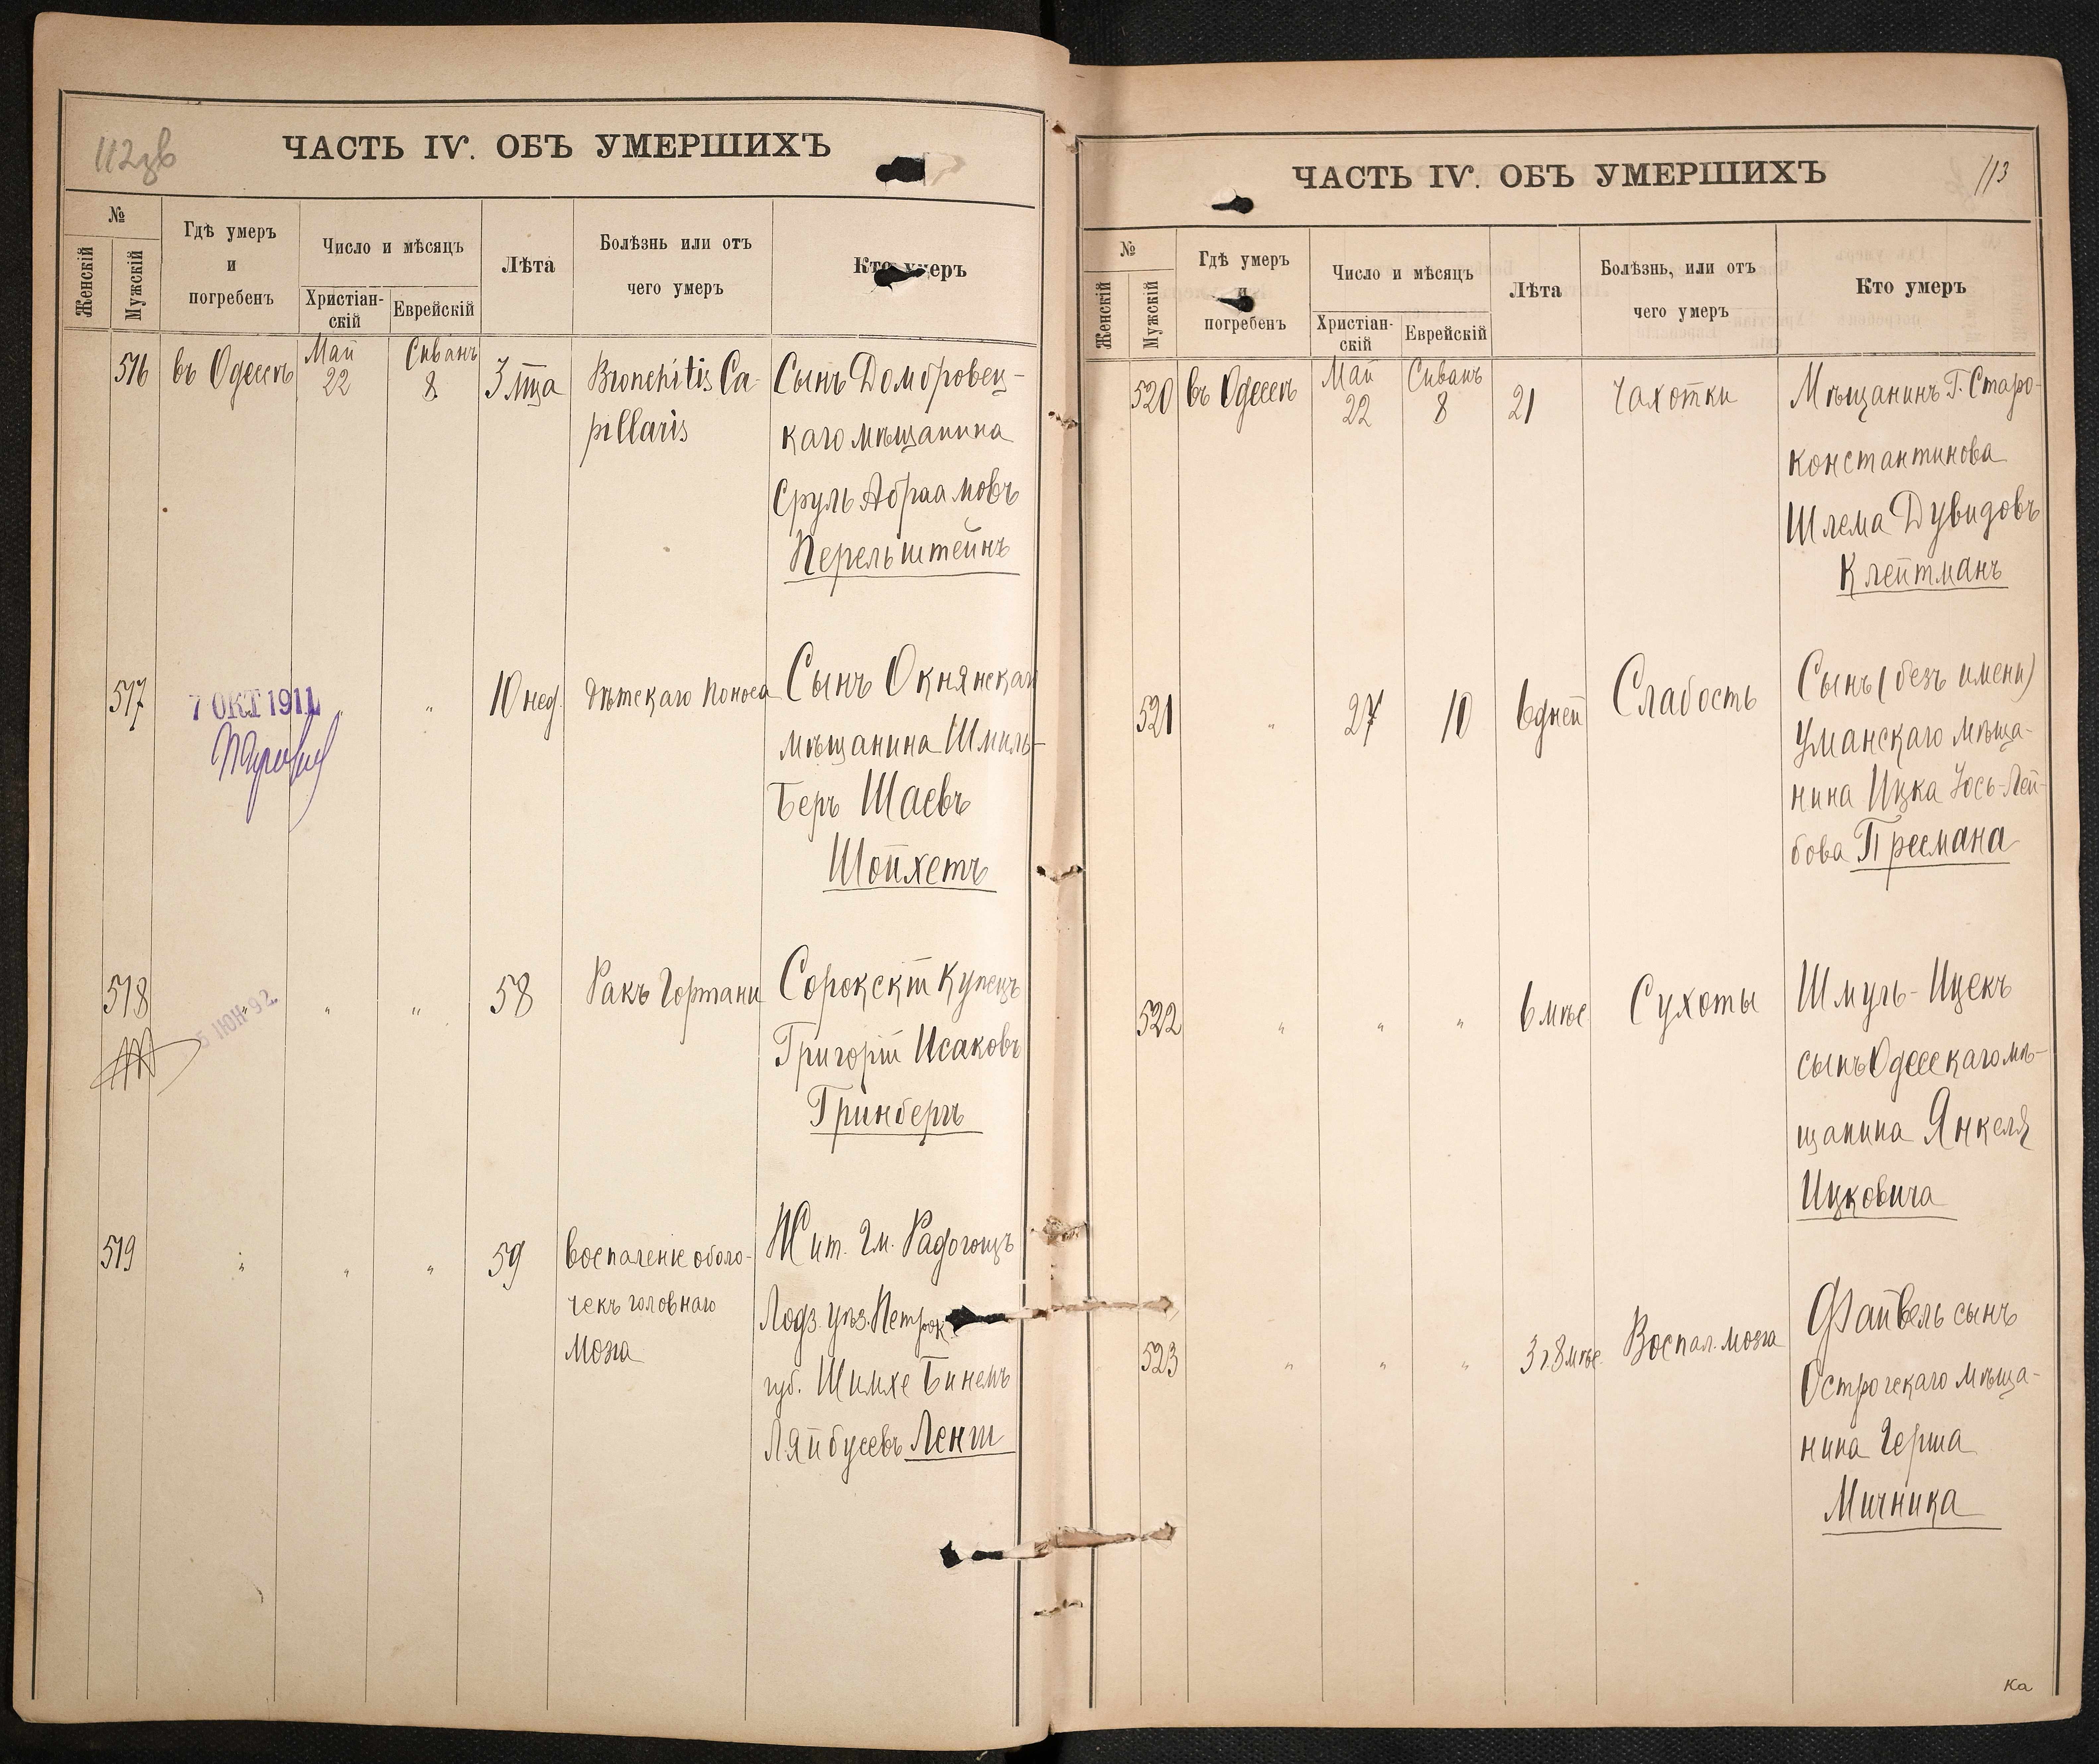 112 зв
ЧАСТЬ IV. ОБЪ УМЕРШИХЪ
№
Женскій
Мужскій
Гдѣ умеръ
и
погребенъ
Число и мѣсяцъ
Христіан-
скій
Еврейскій
Лѣта
Болѣзнь или отъ
чего умеръ
Кто умеръ
516
въ Одессѣ
Май
22
Сиванъ
8
3 мца
Bronchitis Ca-
pillaris
Сынъ Домбровец-
каго мѣщанина
Сруль Абраамовъ
Перельштейнъ
517
7 ОКТ 1911
"
"
10 нед.
Дѣтскаго поноса
Сынъ Окнянскаго
мѣщанина Шмиль-
Беръ Шаевъ
Шойхетъ
518
"
5 ІЮН 92
"
"
58
Ракъ Гортани
Сорокскій Купецъ
Григорій Исаковъ
Гринбергъ
519
"
"
"
59
Воспаленіе оболо-
чекъ головнаго
мозга
Жит. Гм. Радогощъ
Лодз. уѣз. Петрок.
губ. Шимхе Бинемъ
Ляйбусевъ Ленги
113
ЧАСТЬ IV. ОБЪ УМЕРШИХЪ
№
Женскій
Мужскій
Гдѣ умеръ
и
погребенъ
Число и мѣсяцъ
Христіан-
скій
Еврейскій
Лѣта
Болѣзнь, или отъ
чего умеръ
Кто умеръ
520
въ Одессѣ
Май
22
Сиванъ
8
21
Чахотки
Мѣщанинъ Г. Старо-
константинова
Шлема Дувидовъ
Клейтманъ
521
"
24
10
6 дней
Слабость
Сынъ (безъ имени)
Уманскаго мѣща-
нина Ицка Iось-Лей-
бова Пресмана
522
"
"
"
6 мѣс
Сухоты
Шмуль-Ицекъ
сынъ Одесскаго мѣ-
щанина Янкеля
Ицковича
523
"
"
"
3 г. 8 мѣс.
Воспал. мозга
Файвель сынъ
Острогскаго мѣща-
нина Герша
Мичника
Ка